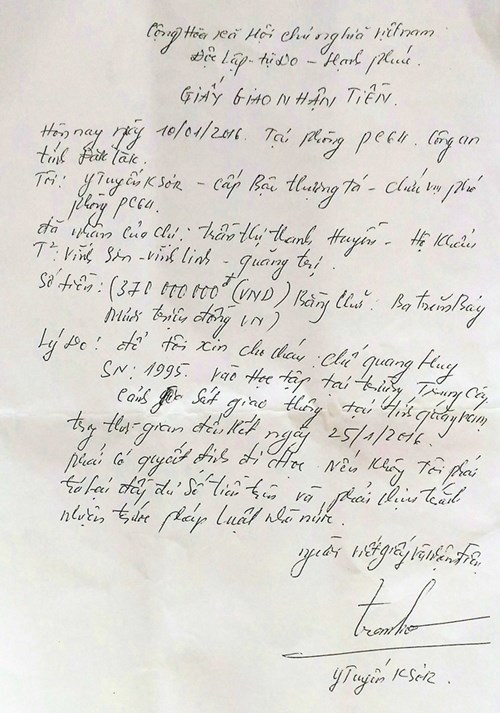 Cộng Hòa xã Hội chủ nghĩa Việt nam
Độc Lập - tự Do - Hạnh phúc.
GIẤY GIAO NHẬN TIỀN.
Hôm nay ngày 10/01/2016. Tại phòng PC64. Công an
tỉnh Đắk Lắk.
Tôi: YTuyến KSơR - cấp Bậc thượng tá - chức vụ phó
phòng PC64.
đã nhận của chị: trần thị thanh Huyền - Hộ Khẩu
T²: Vĩnh Sơn - vĩnh linh - quảng trị.
Số tiền: (370 000 000đ (VND) Bằng chữ: Ba trăm Bảy
Mươi triệu đồng VN)
Lý Do: để tôi xin cho cháu: chế quang Huy
SN: 1995 vào Học tập tại trường Trung Cấp
Cảnh Sát giao thông tại tỉnh quảng nam
thời gian đến hết ngày 25/1/2016.
phải có quyết định đi Học. Nếu không tôi phải
trả lại đầy đủ số tiền trên và phải chịu trách
nhiệm trước pháp luật nhà nước.
người viết giấy và nhận tiền
YTuyến KSƠR.